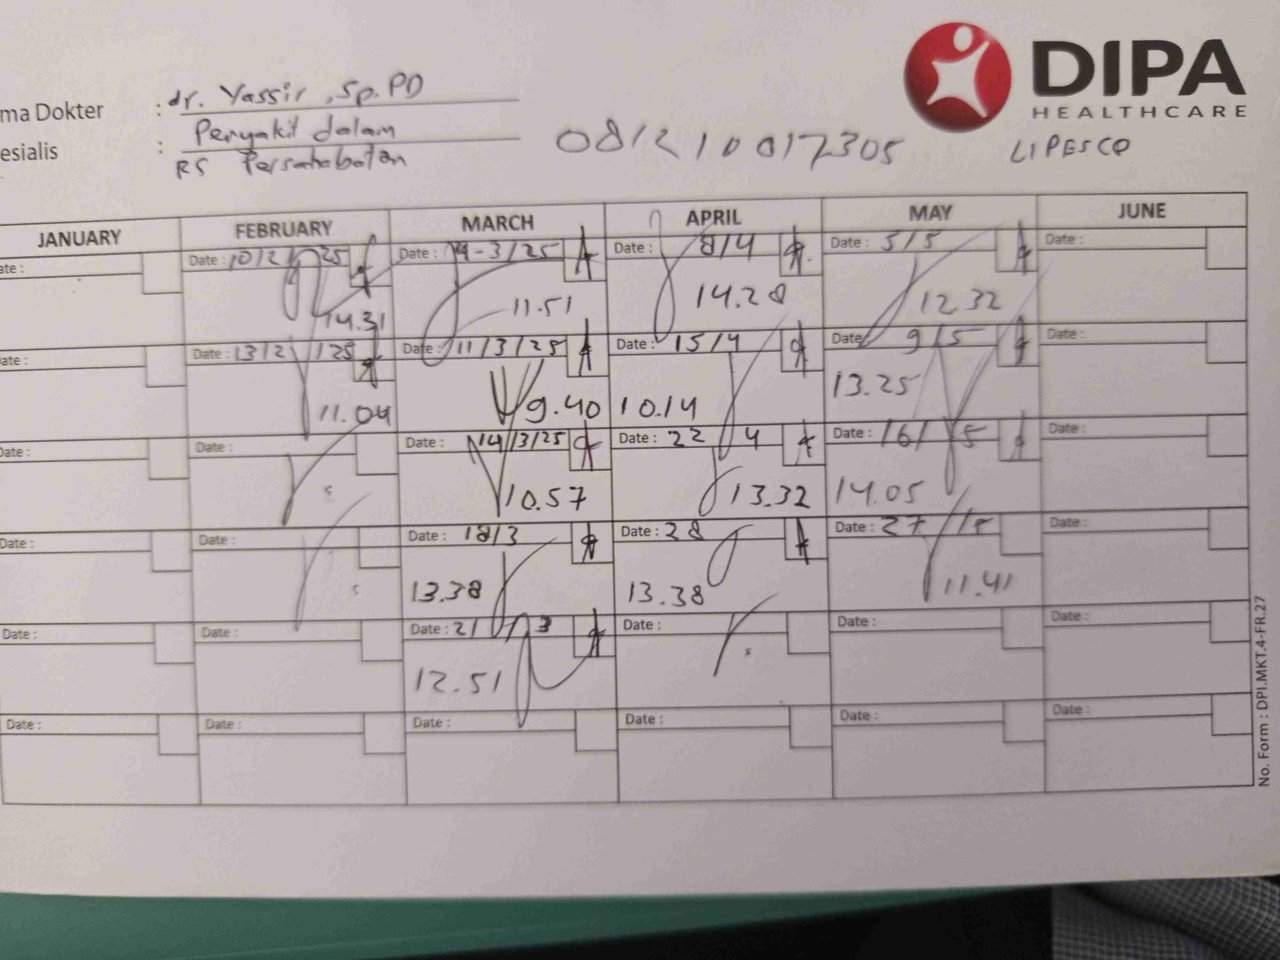 DIPA
HEALTHCARE
ma Dokter : dr. Yassir, Sp.PD
esialis : Penyakit dalam
RS Persahabatan
081210017305
LIPESCO
JANUARY FEBRUARY MARCH APRIL MAY JUNE
ate: Date: 10/2 25 Date: 4-3/25 Date: 8/4 Date: 5/5 Date:
14.31 11.51 14.28 12.32
ate: Date: 13/2 /25 Date: 11/3/25 Date: 15/4 Date 9/5 Date:
11.04 9.40 10.14 13.25
Date: Date: Date: 14/3/25 Date: 22 4 Date: 16/5 Date:
10.57 13.32 14.05
Date: Date: Date: 18/3 Date: 28 Date: 27/5 Date:
13.38 13.38 11.41
Date: Date: Date: 21/3 Date: Date: Date:
12.51
Date: Date: Date: Date: Date: Date:
No. Form : DPI.MKT.4-FR.27